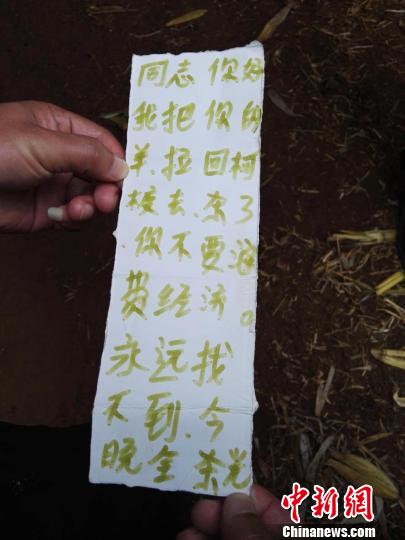 同志.你好
我把你的
羊.拉回柯
校去.杀了
.你不要浪
费经济。
永远找
不到.今
晚全杀光
中新网
Chinanews.com